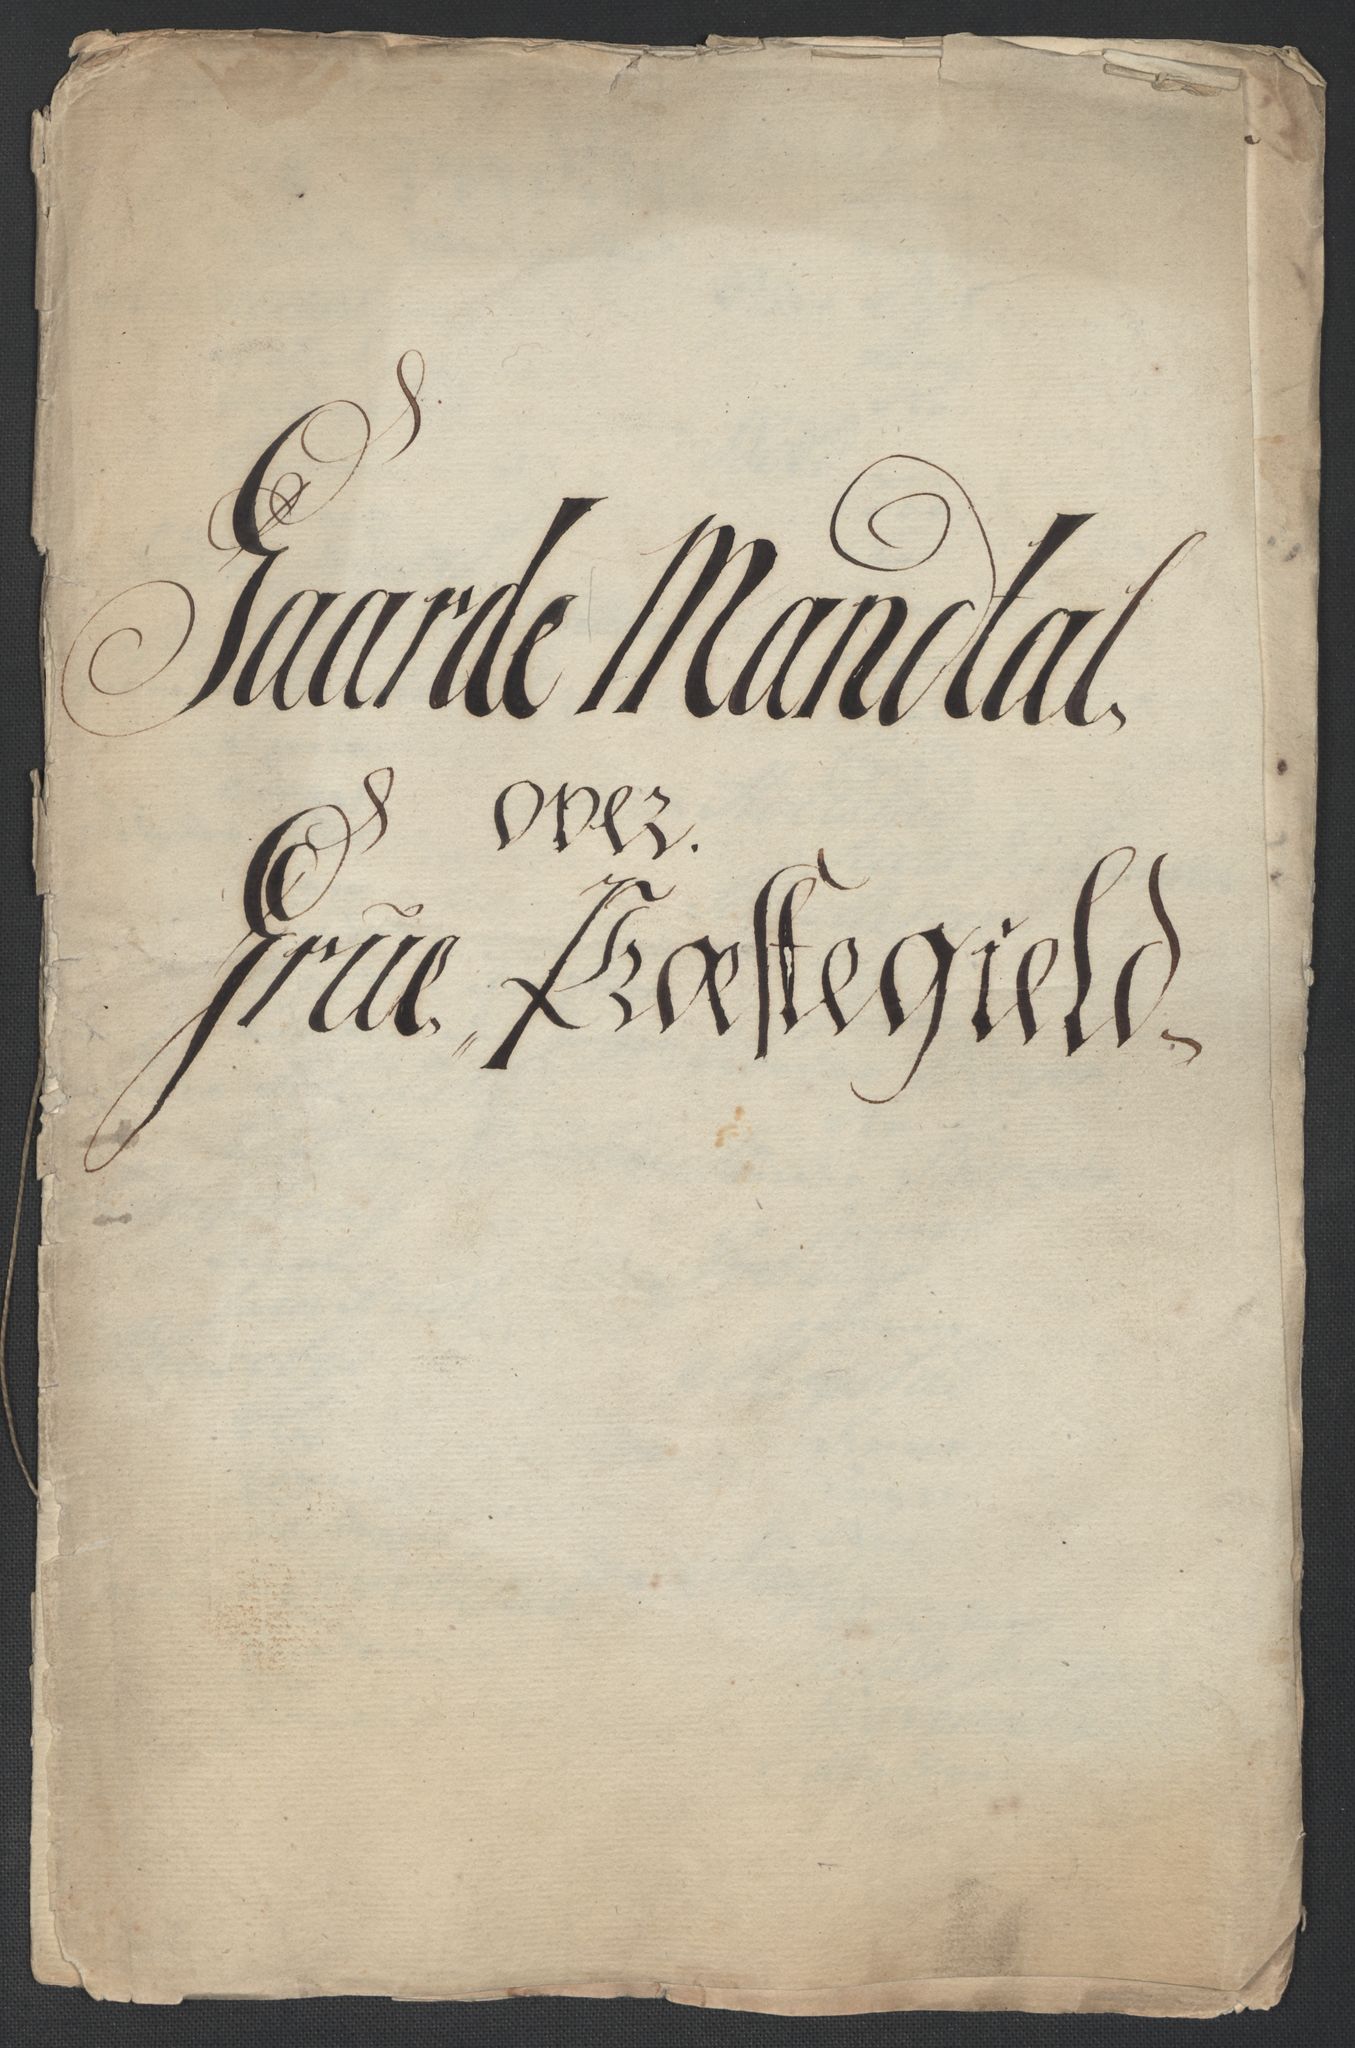 Gaarde Mandtal.
over.
Grũe Præstegield.